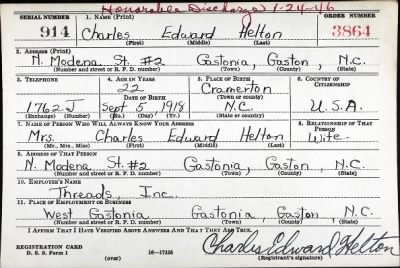 Honorable Discharge) 1-24-46
SERIAL NUMBER 1. NAME (Print) ORDER NUMBER
914 Charles Edward Helton 3864
(First) (Middle) (Last)
2. ADDRESS (Print)
N. Modena St. #2 Gastonia, Gaston, N.C.
(Number and street or R. F. D. number) (Town) (County) (State)
3. TELEPHONE 4. AGE IN YEARS 5. PLACE OF BIRTH 6. COUNTRY OF CITIZENSHIP
22 Cramerton
DATE OF BIRTH (Town or county)
1762J Sept 5 1918 N.C. U.S.A.
(Exchange) (Number) (Mo.) (Day) (Yr.) (State or country)
7. NAME OF PERSON WHO WILL ALWAYS KNOW YOUR ADDRESS 8. RELATIONSHIP OF THAT PERSON
Mrs. Charles Edward Helton Wife
(Mr., Mrs., Miss) (First) (Middle) (Last)
9. ADDRESS OF THAT PERSON
N. Modena St. #2 Gastonia, Gaston, N.C.
(Number and street or R. F. D. number) (Town) (County) (State)
10. EMPLOYER'S NAME
Threads Inc.
11. PLACE OF EMPLOYMENT OR BUSINESS
West Gastonia Gastonia, Gaston N.C.
(Number and street or R. F. D. number) (Town) (County) (State)
I AFFIRM THAT I HAVE VERIFIED ABOVE ANSWERS AND THAT THEY ARE TRUE.
REGISTRATION CARD
D. S. S. Form 1 (over) 16—17105 Charles Edward Helton
(Registrant's signature)